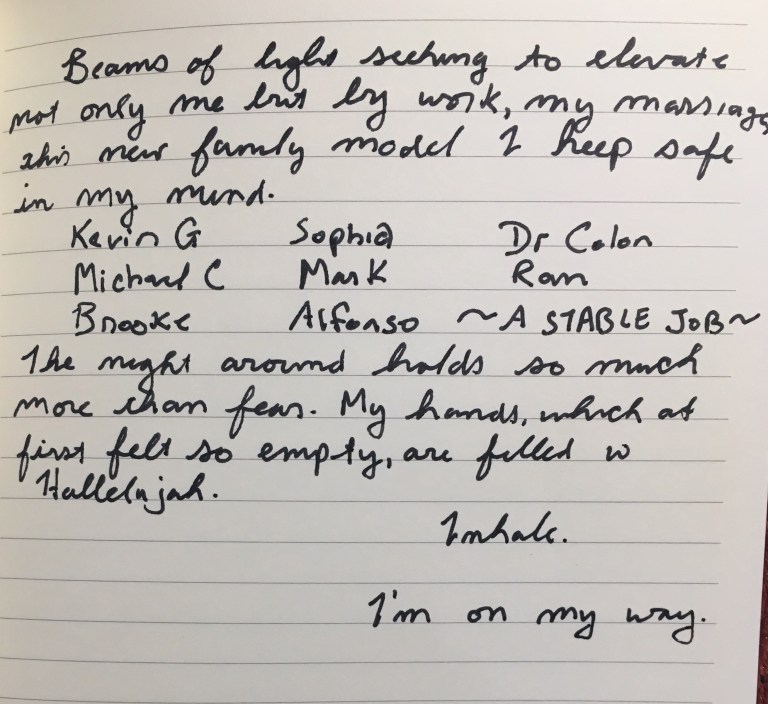 Beams of light seeking to elevate
not only me but by work, my marriage
this new family model I keep safe
in my mind.
Kevin G Sophia Dr Colon
Michael C Mark Ram
Brooke Alfonso ~A STABLE JOB~
The night around holds so much
more than fear. My hands, which at
first felt so empty, are filled w
Hallelujah.
Inhale.
I'm on my way.